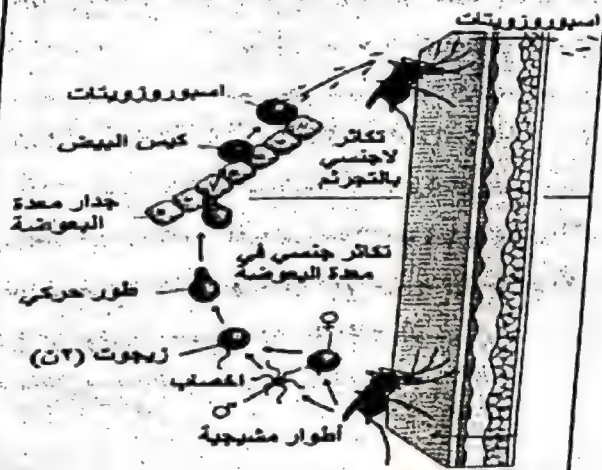 اسبوروزويتات
اسبوروزويتات
كيس البيض
تكاثر
لاجنسي
بالتجرثم
جدار معدة
البعوضة
تكاثر جنسي في
معدة البعوضة
طور حركي
زيجوت (٢ن)
اخصاب
أطوار مشيجية
♀
♂